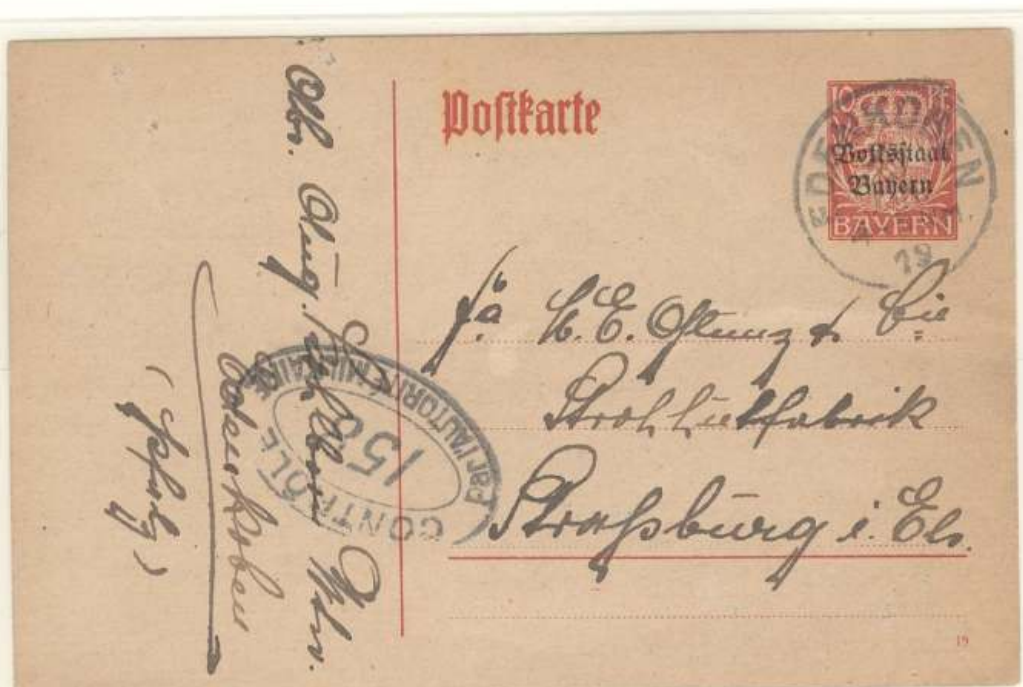 Postkarte
10 PF
Volksstaat
Bayern
BAYERN
EDENKOBEN
19
Fa
& Cie
Strohhutfabrik
Straßburg i. Els.
Abs. Aug.
Edenkoben
(Pfalz)
CONTRÔLE
par l'AUTORITÉ MILITAIRE
156
19